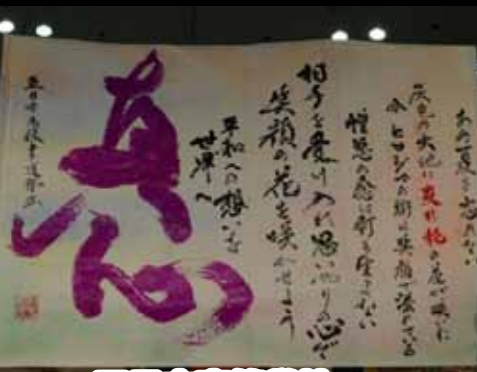 あの夏を忘れない
灰色の大地に夾竹桃の花が咲いた
今ヒロシマの街は笑顔で溢れている
憎悪の念は何も生まない
相手を受け入れ思いやりの心で
笑顔の花を咲かせよう
平和への想いを
世界へ
真心
五日市高校書道部